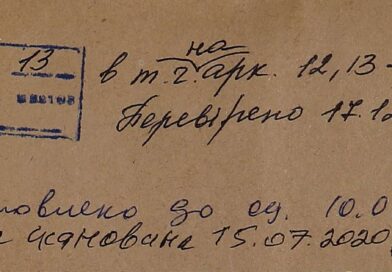 13
на
в т.ч. арк. 12, 13-
Перевірено 17.12
овлено до ед. 10.0
сканована 15.07.2020